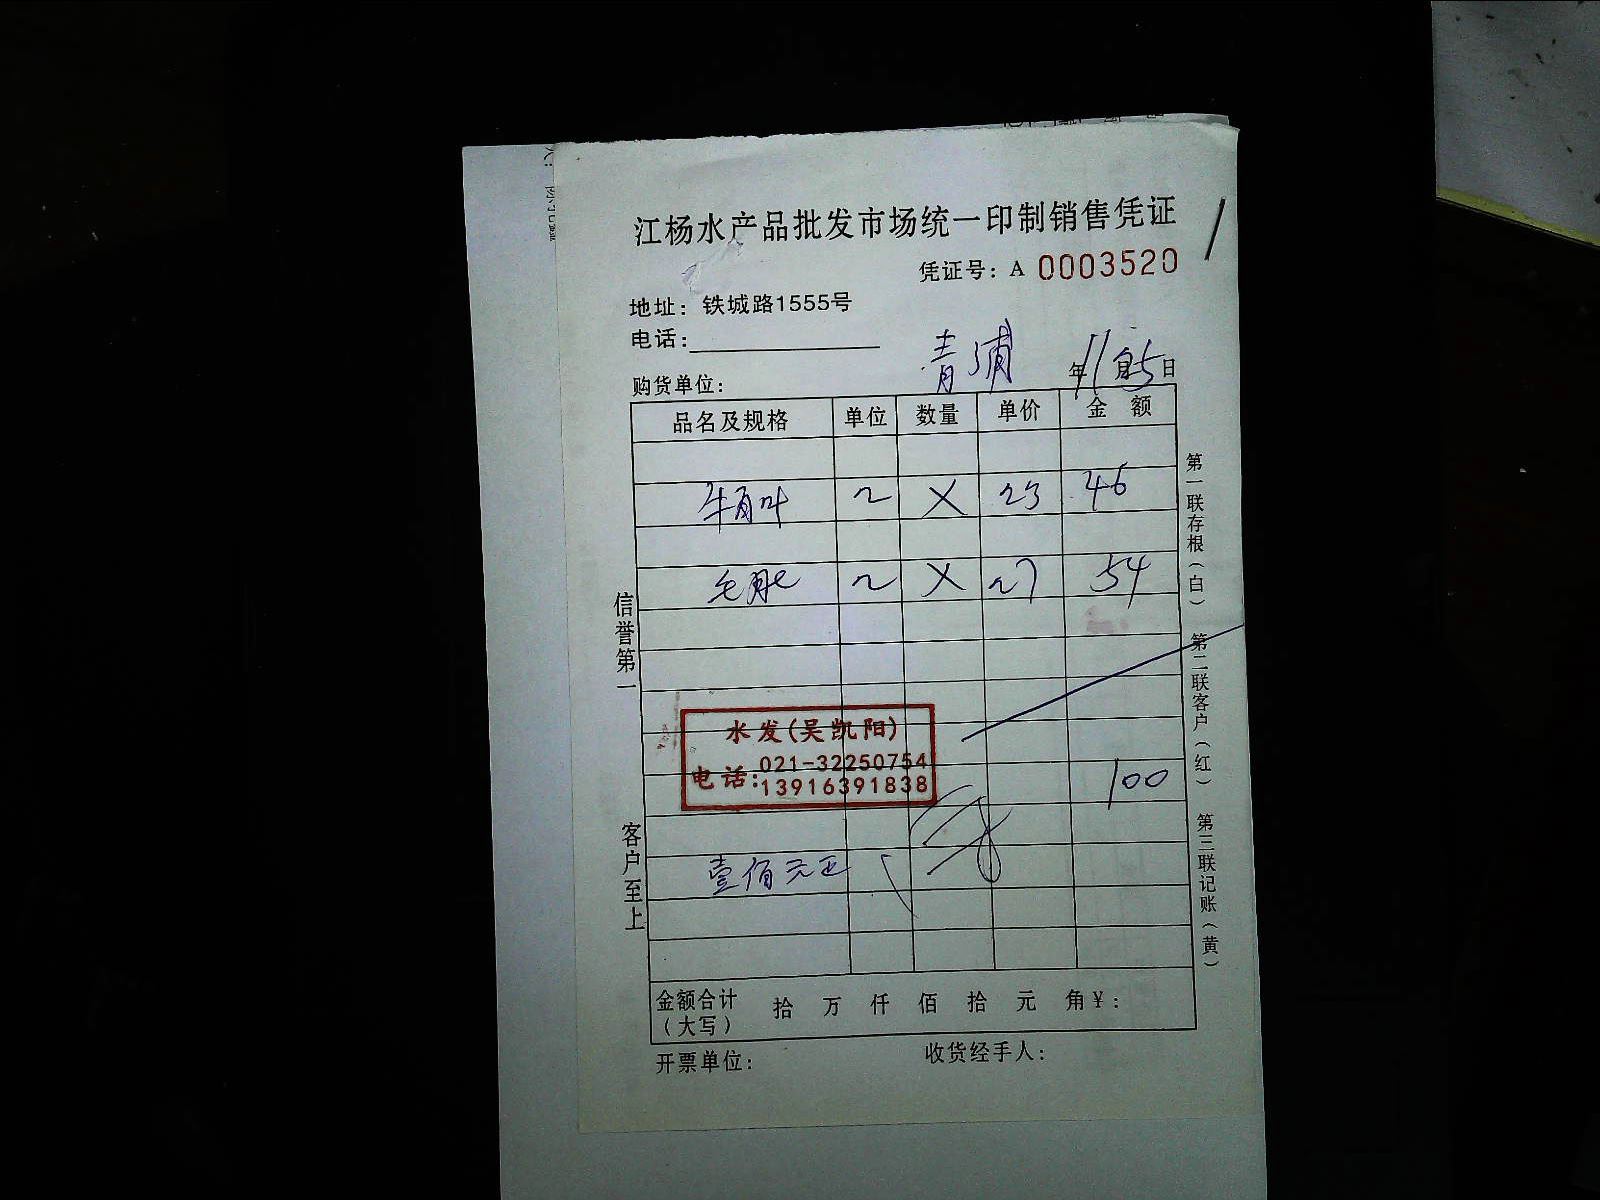 江杨水产品批发市场统一印制销售凭证
凭证号：A 0003520
地址：铁城路1555号
电话：
青浦
年11月5日
购货单位：
品名及规格 单位 数量 单价 金额
2 X 23 46
毛肚 2 X 27 54
水发(吴凯阳)
电话：021-32250754
13916391838
100
壹佰元正
金额合计（大写） 拾 万 仟 佰 拾 元 角¥：
开票单位： 收货经手人：
信誉第一
客户至上
第一联存根（白）
第二联客户（红）
第三联记账（黄）